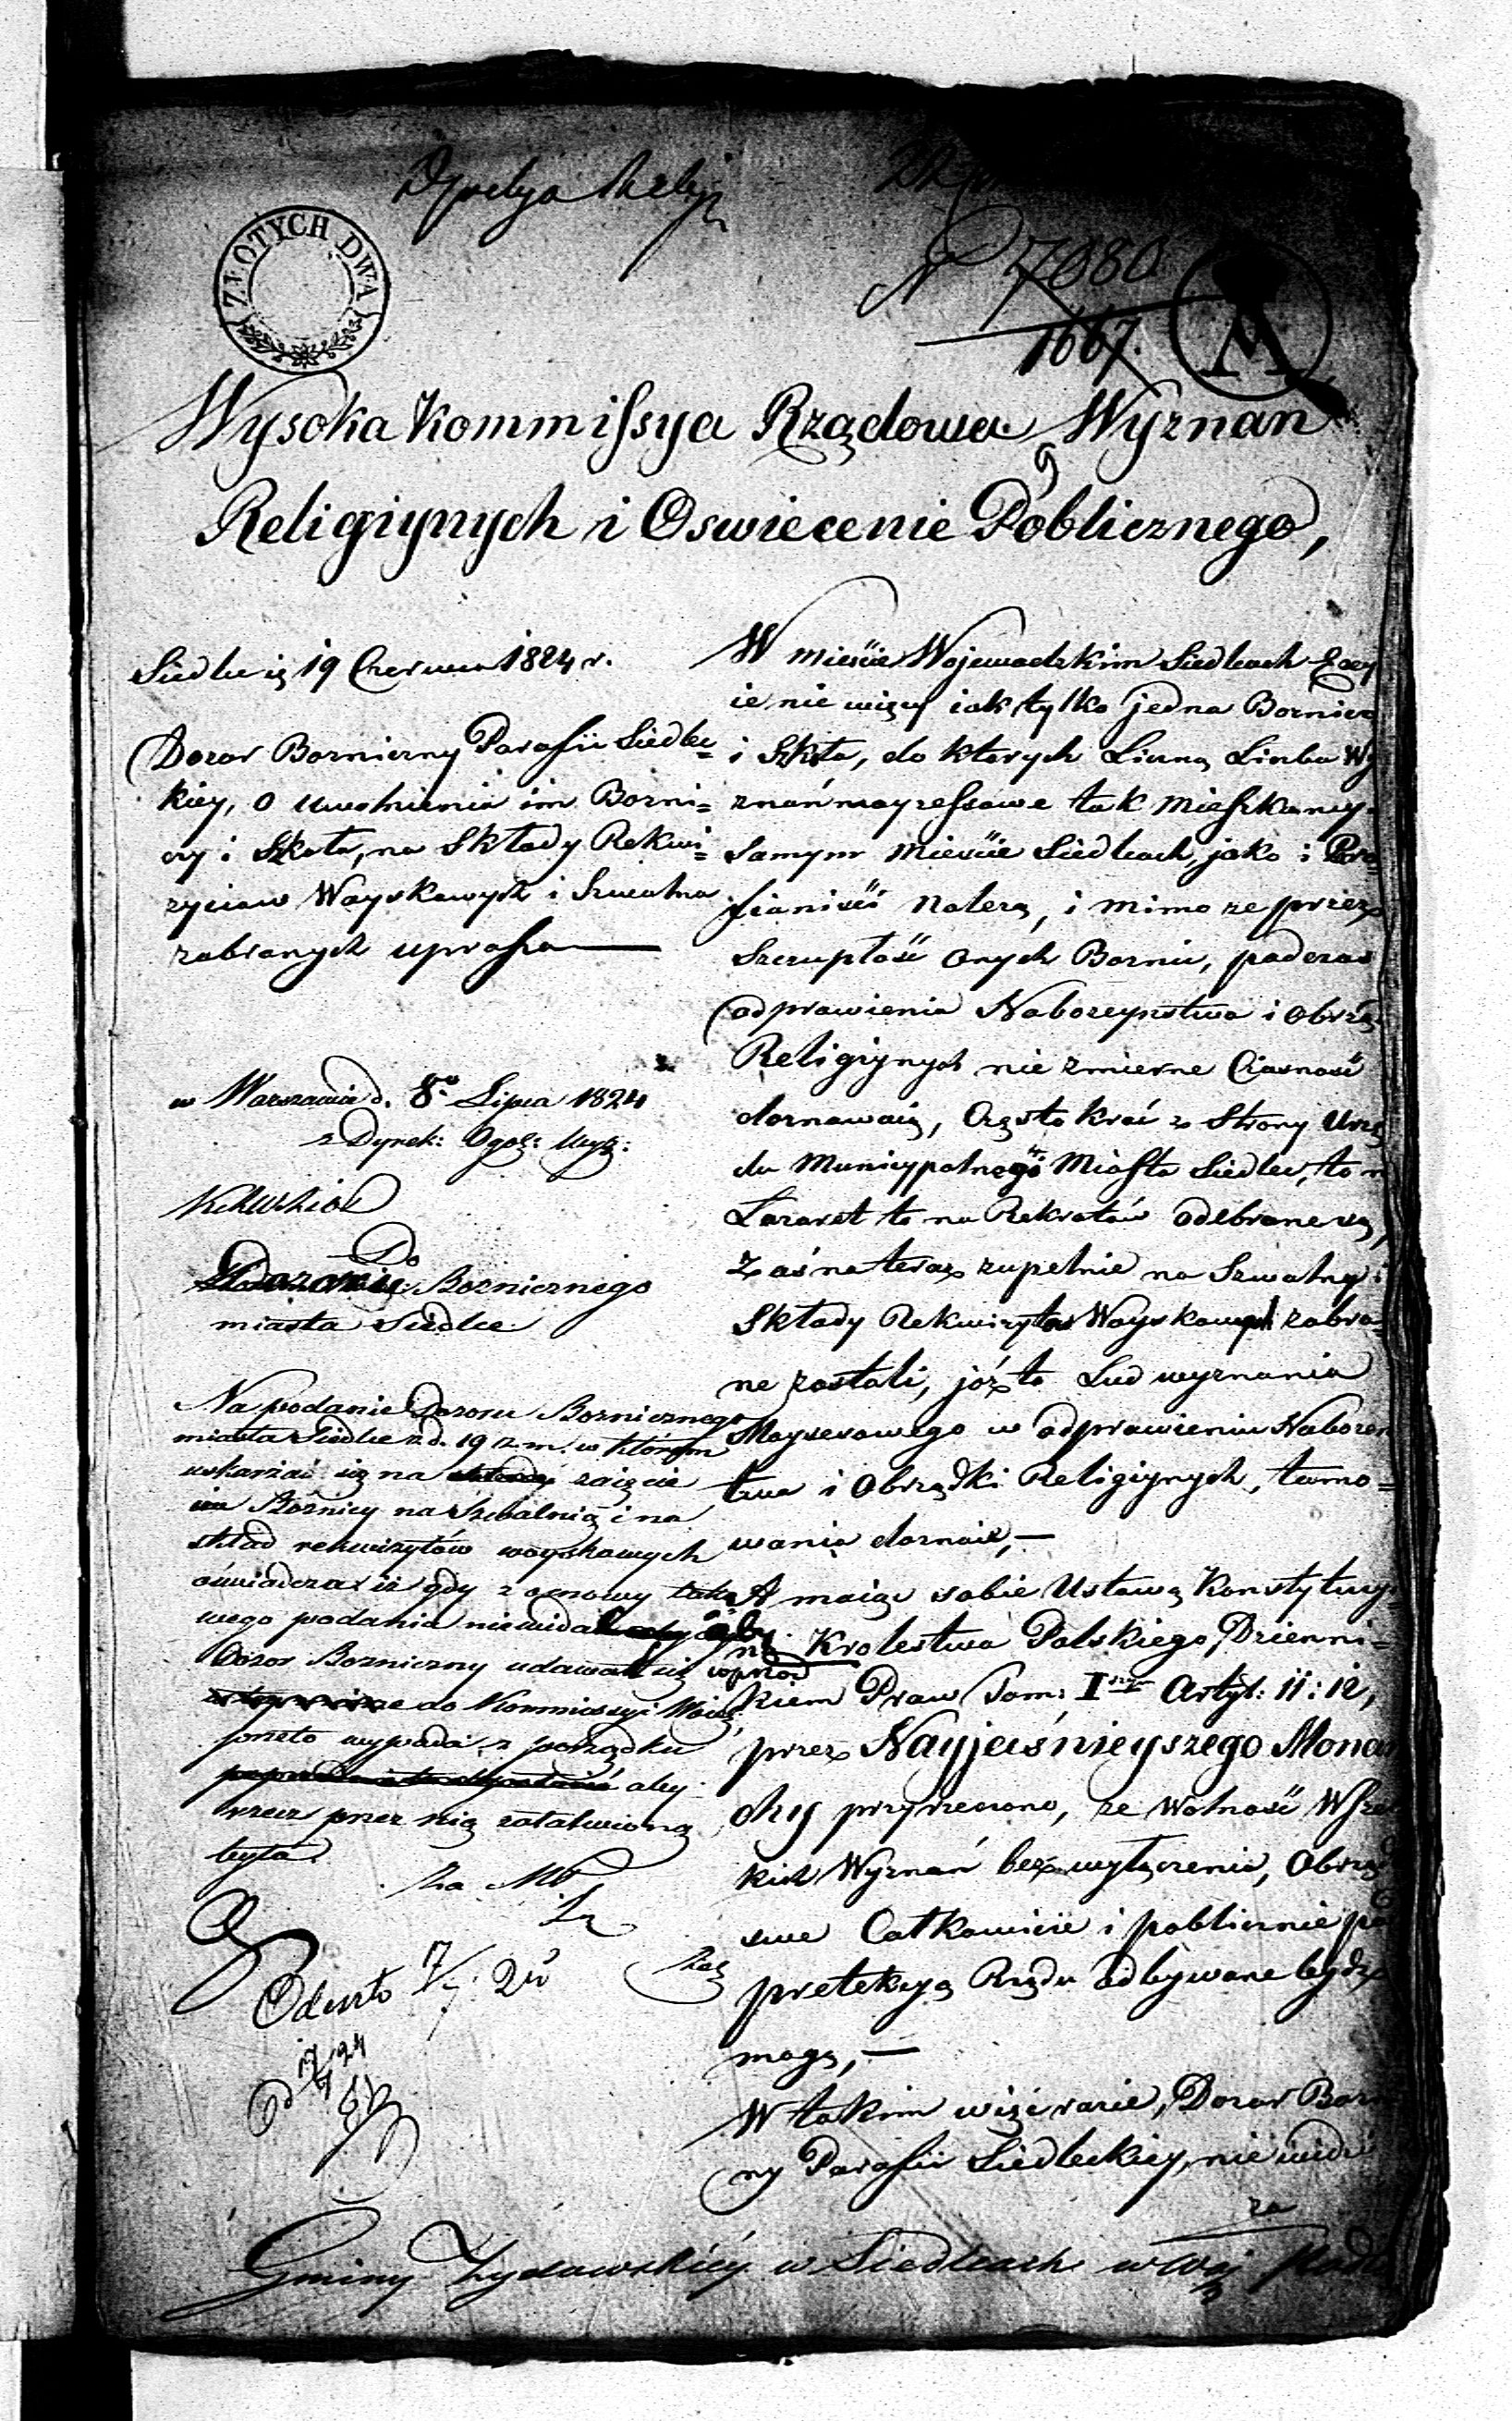 ZŁOTYCH DWA
N 7080
1667.
Wysoka Kommissya Rządowa Wyznan
Religiynych i Oswiecenie Poblicznego,
Siedlcę 19 Czerwca 1824 r.
Dozor Bozniczny Parafii Siedlec=
kiey, o uwolnienia im Bozni=
cy i Szkoła, na Składy Rekwi=
zyciow Woyskowych i Szwalna
zabranych uprasza
w Warszawie d. 8go Lipca 1824
z Dynek: Ogol: Wyz:
Do
Bozniczego
miasta Siedlce
Na podanie Dozoru Bozniczego
miasta Siedlce z d. 19 z. m. w którym
uskarżać się na zaięcie
im Bóżnicy na Szwalnią i na
skład rekwizytów woyskowych
oświadcza iż gdy z osnowy tako
wego podania niewidać aby
Dozor Bozniczny udawał się wprzód
do Kommissyi Woiew:
przeto wypada z porządku
aby
rzecz przez nią załatwioną
była.
W mieście Wojewodzkim Siedlcach Exy
ie nie więcy iak tylko jedna Boznica
i Szkoła, do ktorych Liczna Liczba Wy
znań mayzessowe tak Mieszkancy
Samym Mieście Siedlcach, jako i Para
fianiści Nalezą, i mimo ze przez
Szczupłość onych Boznic, podczas
odprawienia Nabozeynstwa i obrzą
Religiynych nie zmierne Ciasność
doznawaią, Częstokroć z Strony Urzę
du Municypalnego Miasta Siedlec, to n
Lazaret to na Rekrutów odebrane są,
Zaś na teraz zupełnie na Szwalny i
Składy Rekwizytow Woyskowych zabra=
ne zostali, jóż to Lud wyznania
Mayzesowego w odprawieniu Nabozen
twa i Obrządki Religiynych, tamo=
wania doznaie,—
A maiąc sobie Ustawą Konstytucy
ną Krolestwa Polskiego, Dzienni=
kiem Praw Tom: I Artył: 11: 12,
przez Nayjaśnieyszego Monar
chy przyrzeczono, że Wolność Wszel
kich Wyznań bez wyłączenia, Obrząd
swe Całkowicie i poblicznie pod
protekcyą Rządu odbywane będź
mogą,—
W takim więc razie, Dozor Bozni
ny Parafii Siedleckiey, nie widzi
za
Gminy Żydowskiéy w Siedlcach w Woj Podla